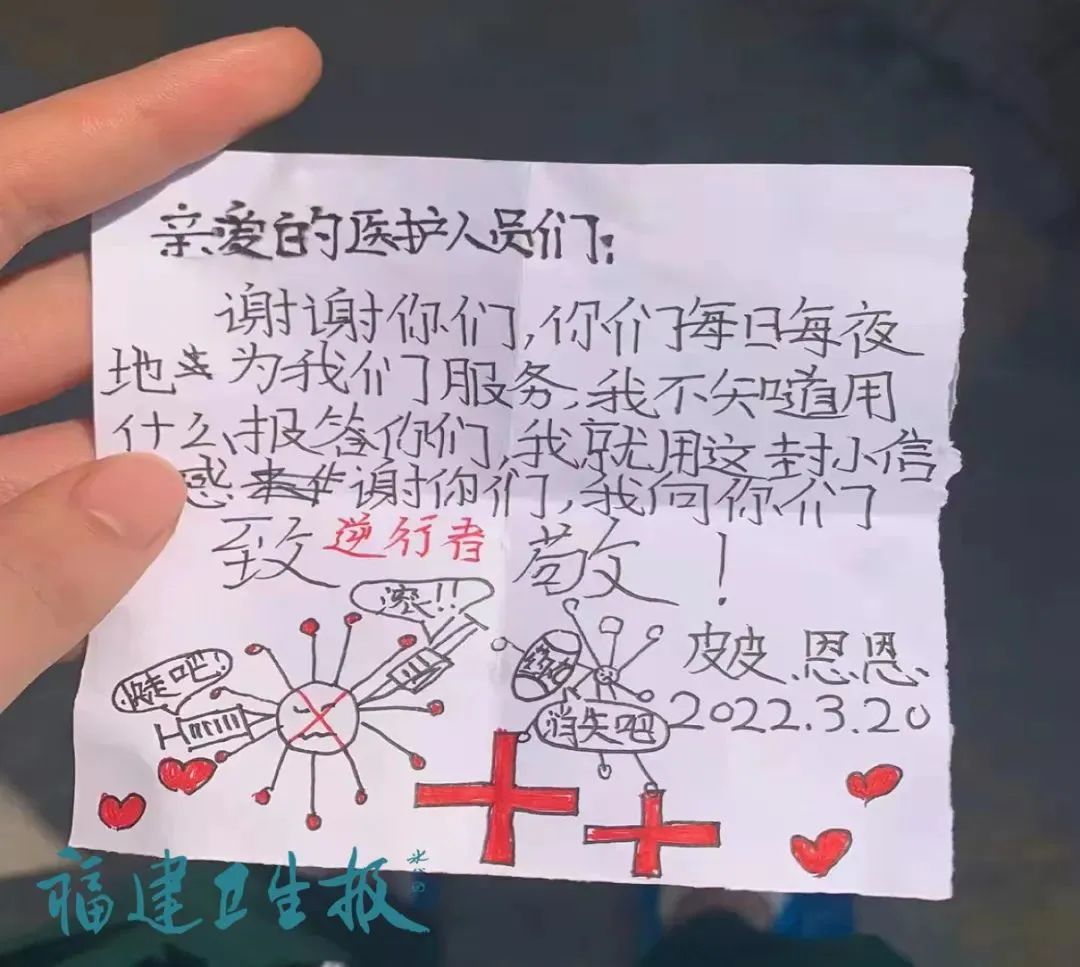 亲爱的医护人员们:
谢谢你们,你们每日每夜
地为我们服务,我不知道用
什么报答你们,我就用这封小信
感谢你们,我向你们
致逆行者敬!
滚!!
走吧!
消失吧
皮皮、恩恩
2022.3.20
福建卫生报